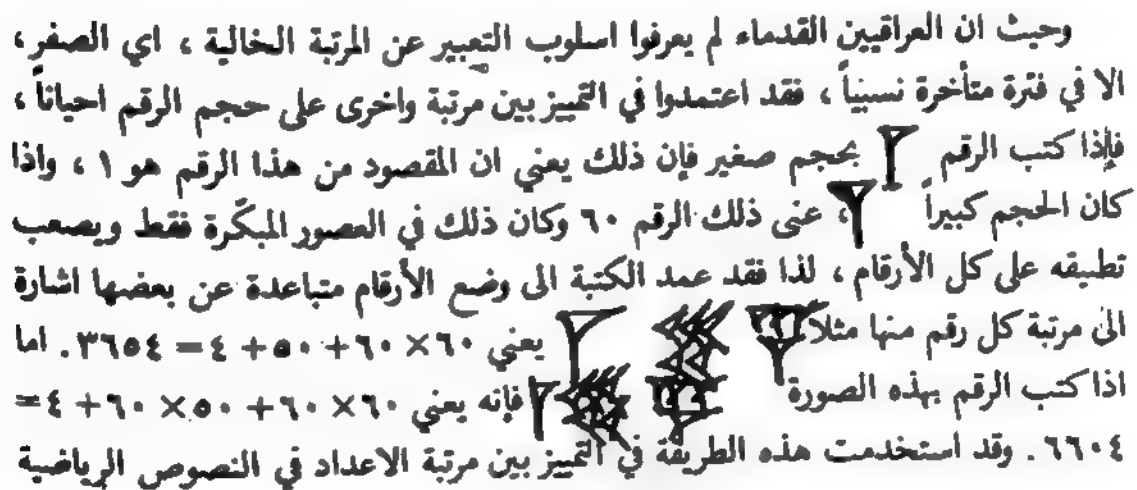 وحيث ان العراقيين القدماء لم يعرفوا اسلوب التعبير عن المرتبة الخالية ، اي الصفر ،
الا في فترة متأخرة نسبياً ، فقد اعتمدوا في التمييز بين مرتبة واخرى على حجم الرقم احياناً ،
فإذا كتب الرقم 𒁹 بحجم صغير فإن ذلك يعني ان المقصود من هذا الرقم هو ١ ، واذا
كان الحجم كبيراً 𒁹 ، عنى ذلك الرقم ٦٠ وكان ذلك في العصور المبكّرة فقط ويصعب
تطبيقه على كل الأرقام ، لذا فقد عمد الكتبة الى وضع الأرقام متباعدة عن بعضها اشارة
الى مرتبة كل رقم منها مثلا يعني ٦٠×٦٠+٥٠+٤=٣٦٥٤. اما
اذا كتب الرقم بهذه الصورة فإنه يعني ٦٠×٦٠+٥٠×٦٠+٤=
٦٦٠٤. وقد استخدمت هذه الطريقة في التمييز بين مرتبة الاعداد في النصوص الرياضية